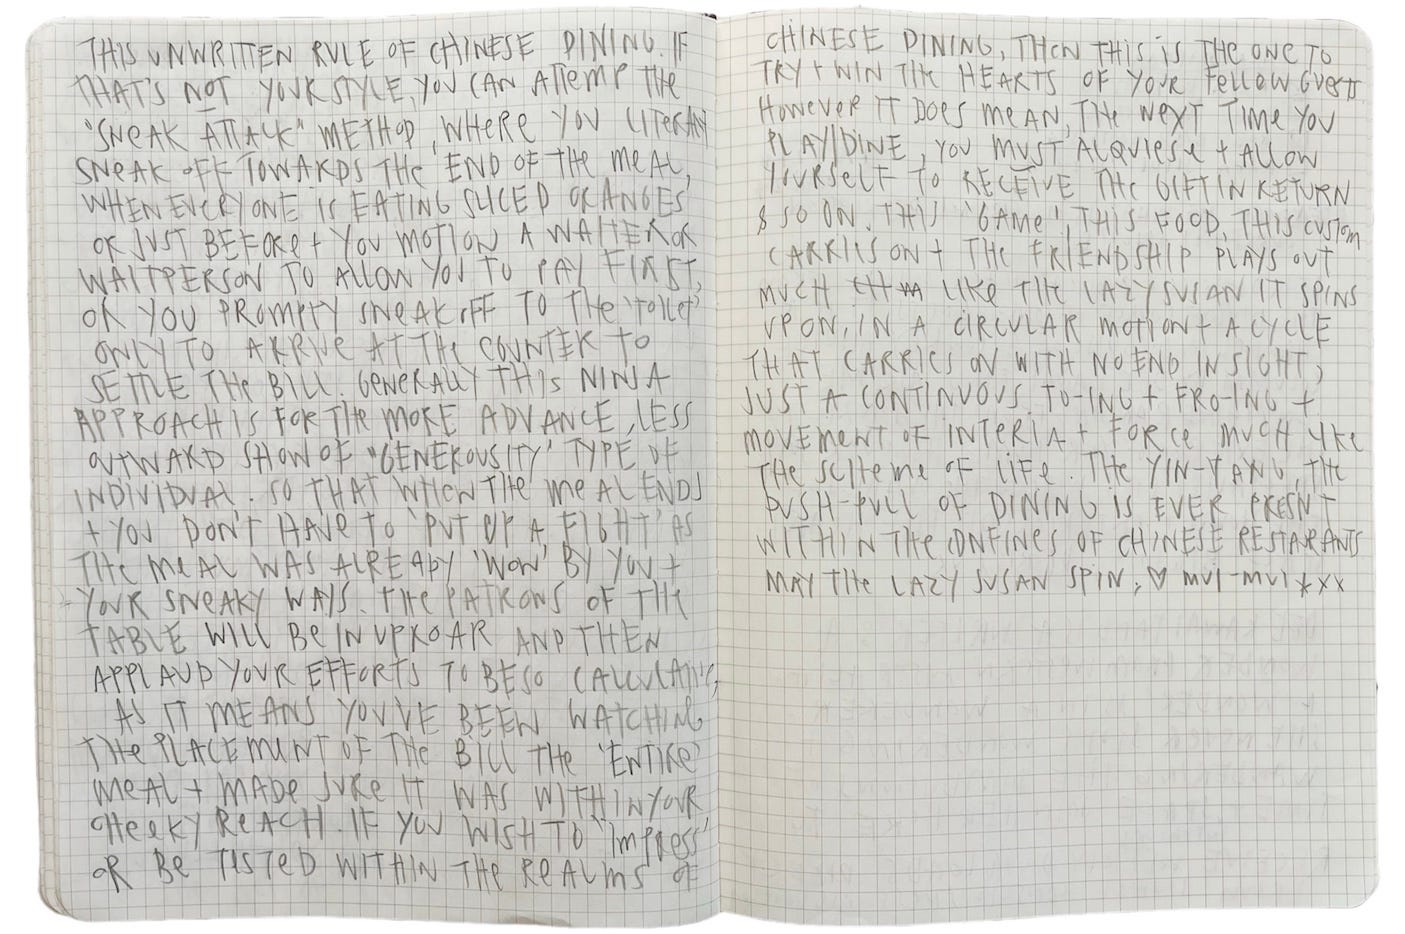 THIS UNWRITTEN RULE OF CHINESE DINING. IF
THAT'S NOT YOUR STYLE, YOU CAN ATTEMP THE
"SNEAK ATTACK" METHOD, WHERE YOU LITERALLY
SNEAK OFF TOWARDS THE END OF THE MEAL,
WHEN EVERYONE IS EATING SLICED ORANGES
OR JUST BEFORE + YOU MOTION A WAITER OR
WAITPERSON TO ALLOW YOU TO PAY FIRST,
OR YOU PROMPTY SNEAK OFF TO THE 'TOILET'
ONLY TO ARRIVE AT THE COUNTER TO
SETTLE THE BILL. GENERALLY THIS NINJA
APPROACH IS FOR THE MORE ADVANCE, LESS
OUTWARD SHOW OF "GENEROUSITY' TYPE OF
INDIVIDUAL. SO THAT WHEN THE MEAL ENDS
+ YOU DON'T HAVE TO 'PUT UP A FIGHT' AS
THE MEAL WAS ALREADY 'WON' BY YOU +
YOUR SNEAKY WAYS. THE PATRONS OF THE
TABLE WILL BE IN UPROAR AND THEN
APPLAUD YOUR EFFORTS TO BE SO CALCULATIVE,
AS IT MEANS YOU'VE BEEN WATCHING
THE PLACEMENT OF THE BILL THE 'ENTIRE'
MEAL + MADE SURE IT WAS WITHIN YOUR
CHEEKY REACH. IF YOU WISH TO 'IMPRESS'
OR BE TESTED WITHIN THE REALMS OF
CHINESE DINING, THEN THIS IS THE ONE TO
TRY + WIN THE HEARTS OF YOUR FELLOW GUESTS.
HOWEVER IT DOES MEAN, THE NEXT TIME YOU
PLAY/DINE, YOU MUST ALQUIESE + ALLOW
YOURSELF TO RECEIVE THE GIFT IN RETURN
& SO ON. THIS 'GAME', THIS FOOD, THIS CUSTOM
CARRIES ON + THE FRIENDSHIP PLAYS OUT
MUCH LIKE THE LAZY SUSAN IT SPINS
UPON, IN A CIRCULAR MOTION + A CYCLE
THAT CARRIES ON WITH NO END IN SIGHT,
JUST A CONTINUOUS TO-ING + FRO-ING +
MOVEMENT OF INTERIA + FORCE MUCH LIKE
THE SCHEME OF LIFE. THE YIN-YANG, THE
PUSH-PULL OF DINING IS EVER PRESENT
WITHIN THE CONFINES OF CHINESE RESTARANTS
MAY THE LAZY SUSAN SPIN, ♡ MUI-MUI *XX